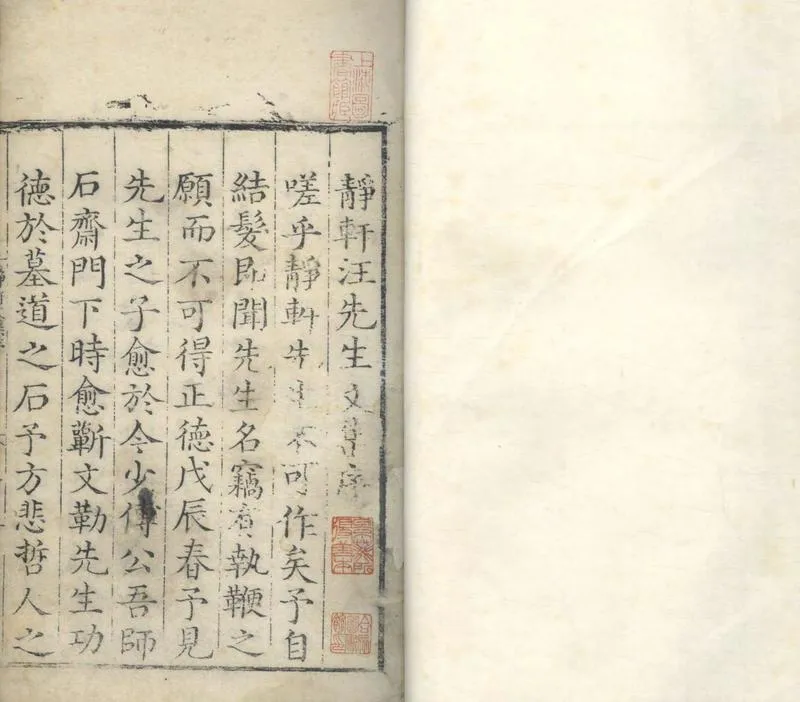 靜軒汪先生文集序
嗟乎靜軒先生不可作矣予自
結髮即聞先生名竊有執鞭之
願而不可得正德戊辰春予見
先生之子愈於今少傅公吾師
石齋門下時愈蘄文勒先生功
德於墓道之石予方悲哲人之
上海圖書館藏